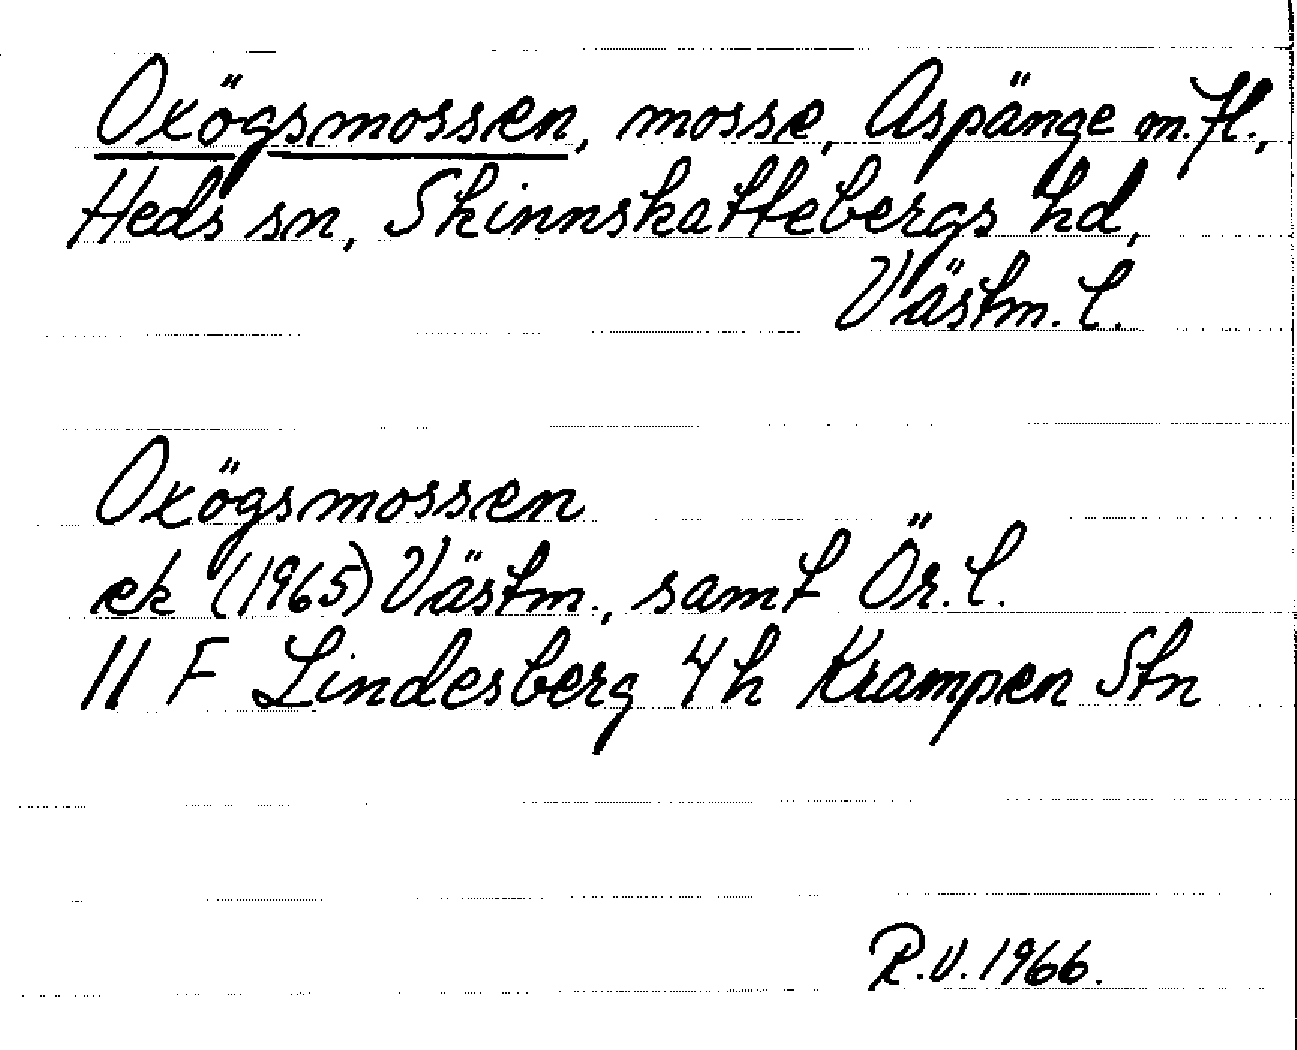 Oxögsmossen, mosse, Aspänge m.fl.,
Heds sn, Skinnskattebergs hd,
Västm. l.
Oxögsmossen
ek (1965) Västm., samt Ör. l.
11 F Lindesberg 4h Krampen Stn
R.V. 1966.